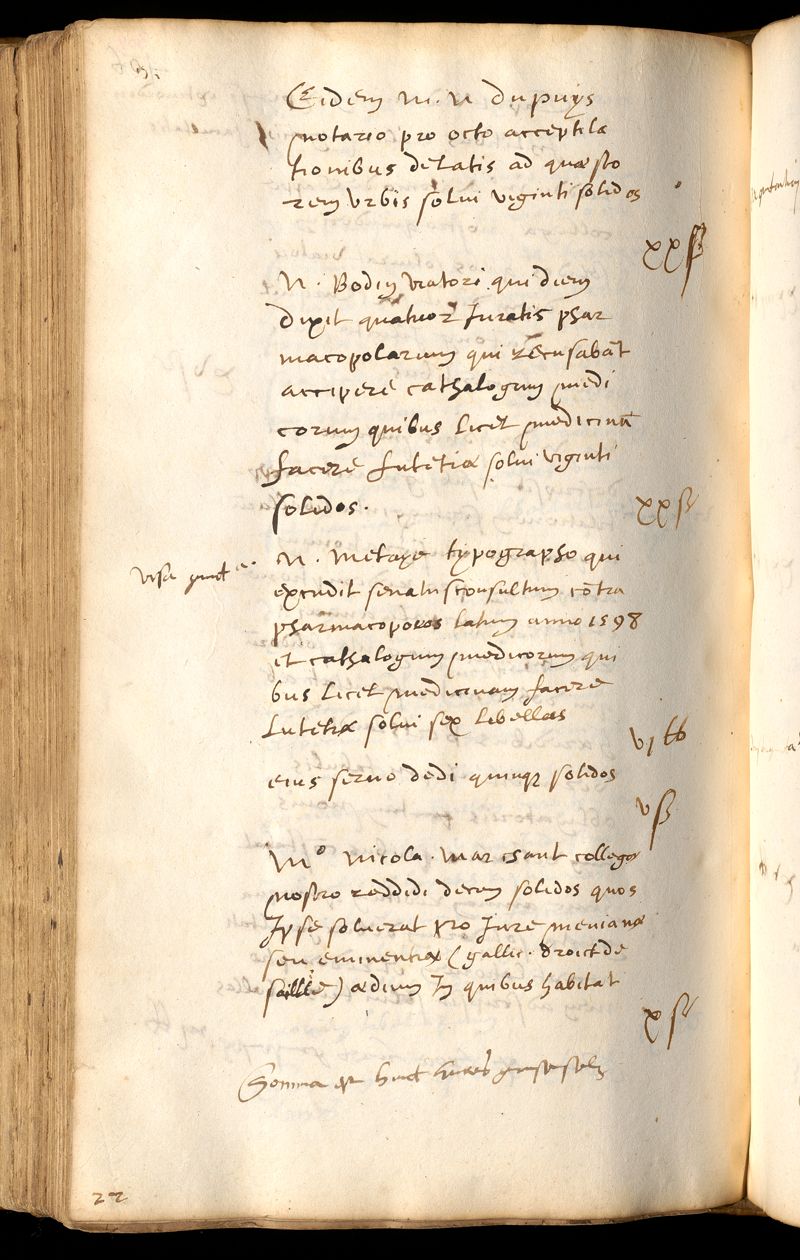 Eidem M. N dupuys
notario pro octo acceptila
tionibus delatis ad quæsto
rem urbis solui viginti solidos
xx ſ
N. Bodin viatori qui diem
dixit quatuor Juratis phar
macopolarum qui recusabāt
accipere cathalogum medi
corum quibus licet medicinā
facere Lutetiæ solui viginti
solidos.
xx ſ
N. Metaye typographo qui
excudit senatusconsultum cōtra
pharmacopoeos latum anno 1598
et cathalogum medicorum qui
bus licet medicinam facere
Lutetiæ solui sex libellas
vi ℔
eius seruo dedi quinque solidos
v ſ
Mᵒ Nicola. Marchant collegæ
nostro reddidi decem solidos quos
Ipse soluerat pro Jure menianæ
seu eminentiæ (gallic. droict de
saillie) ædium In quibus habitat
x ſ
Somma
22